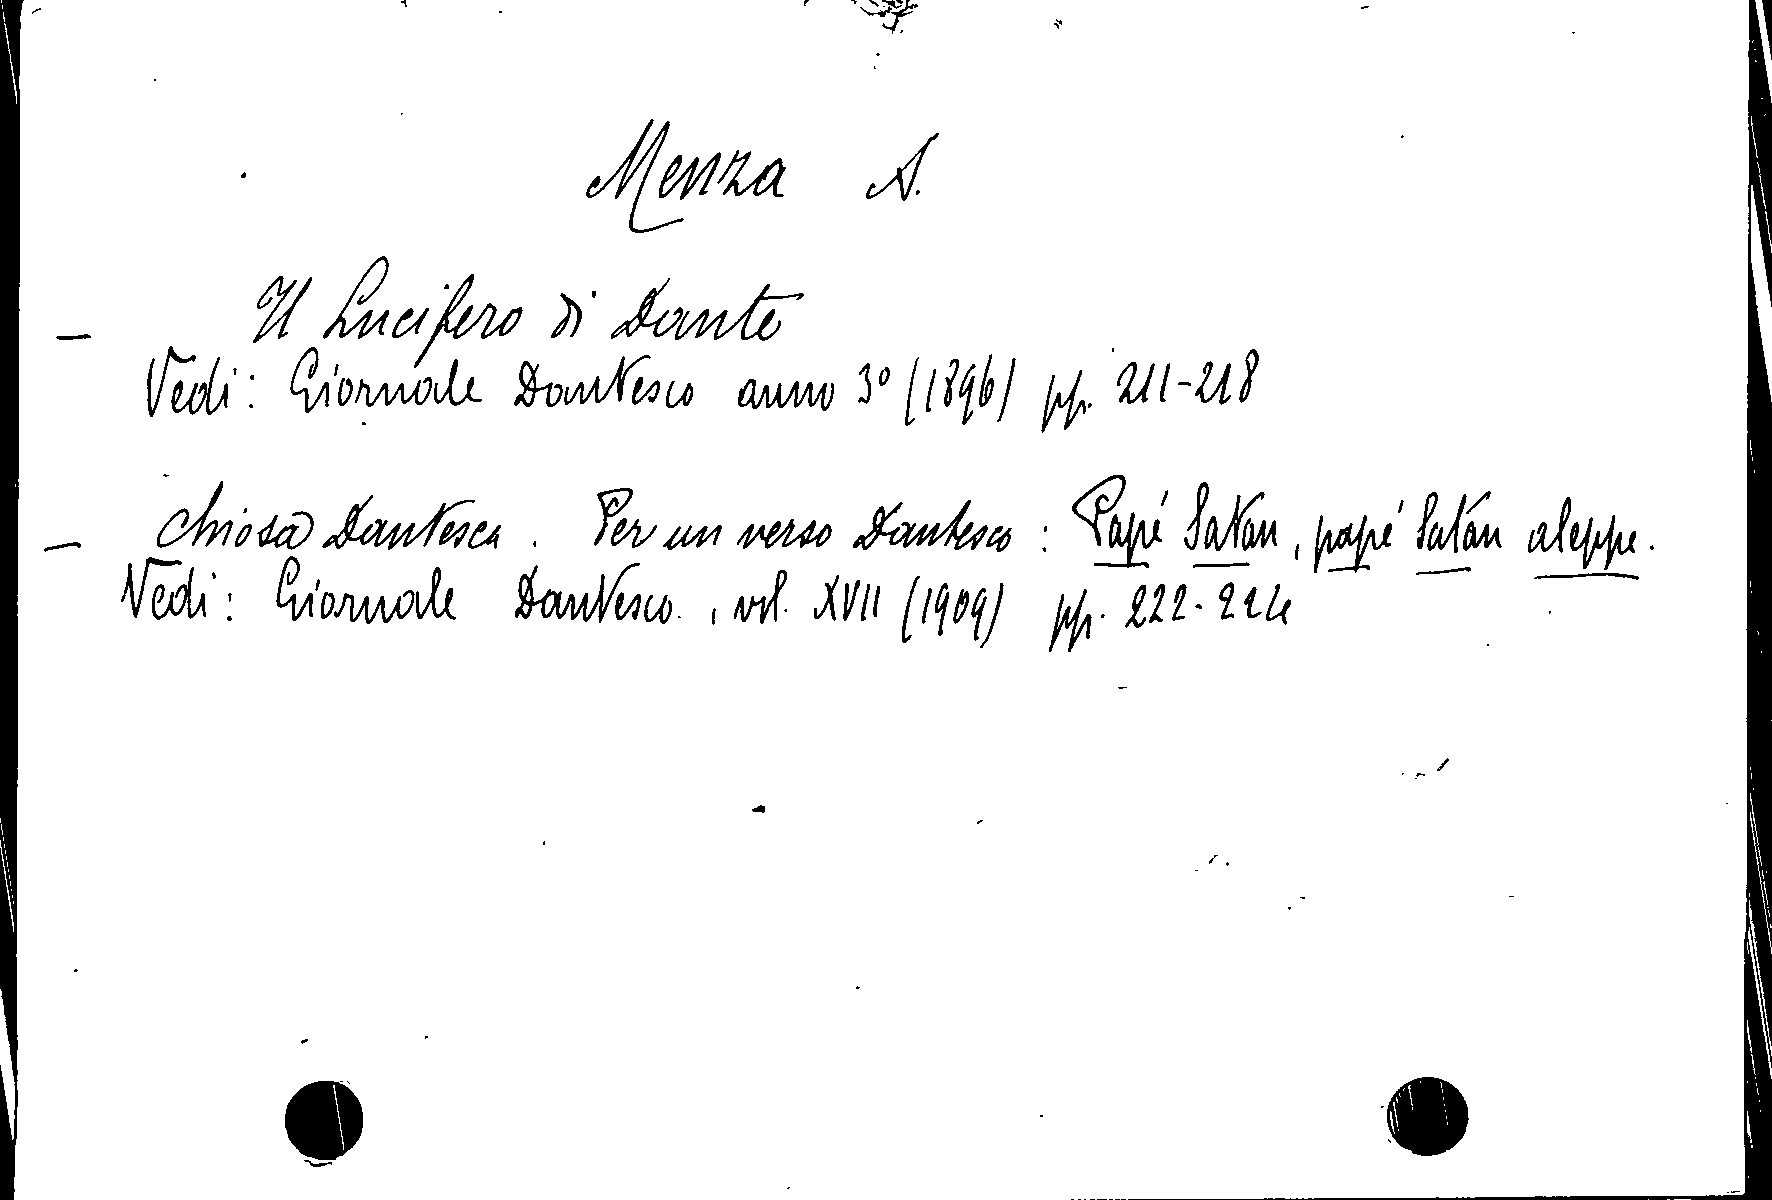 Menza A.
— Il Lucifero di Dante
Vedi: Giornale Dantesco anno 3º (1896) pp. 211-218
— Chiosa Dantesca. Per un verso Dantesco: Papé Satan, papé Satán aleppe.
Vedi: Giornale Dantesco, vol. XVII (1909) pp. 222-224